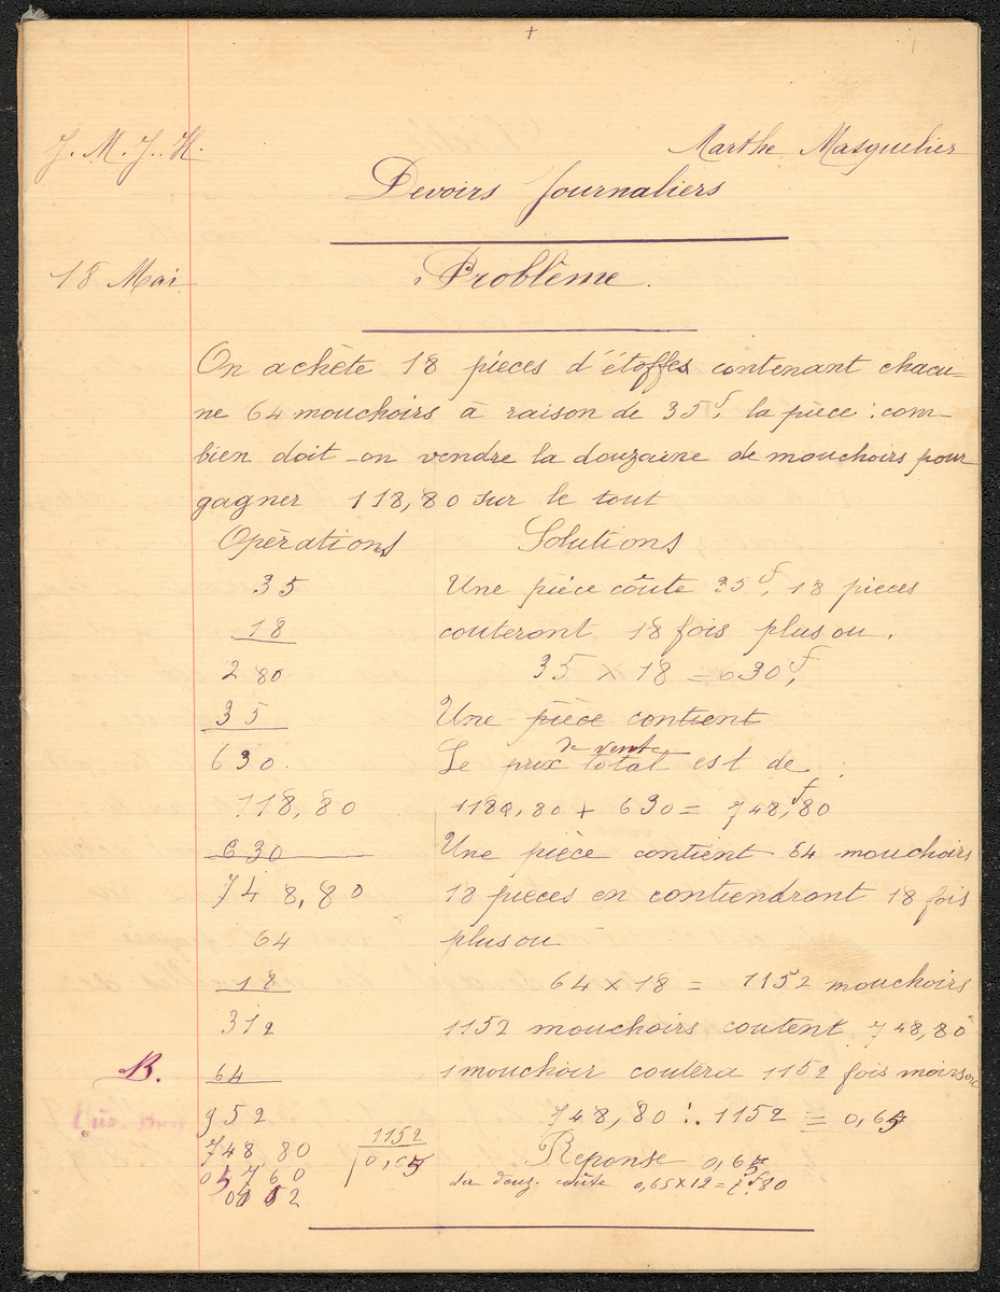 J. M. J. H.
Marthe Masquelier
Devoirs journaliers
18 Mai
Problême.
On achète 18 pièces d'étoffes contenant chacu-
ne 64 mouchoirs à raison de 35f, la pièce : com-
bien doit-on vendre la douzaine de mouchoirs pour
gagner 118,80 sur le tout
Opérations
Solutions
35
18
280
35
630.
118,80
630
748,80
64
18
312
64
952
748 80
1152
0,65
Une pièce coûte 35f, 18 pieces
couteront 18 fois plus ou.
35 × 18 = 630f,
Une pièce contient
de vente
Le prix total est de :
118,80 + 630 = 748,f80
Une pièce contient 64 mouchoirs
18 pieces en contiendront 18 fois
plus ou
64 × 18 = 1152 mouchoirs
1152 mouchoirs coutent 748,80
1 mouchoir coutera 1152 fois moins ou
748,80 : 1152 = 0,65
Reponse 0,65
La douz. coûte 0,65×12=7,f80
B.